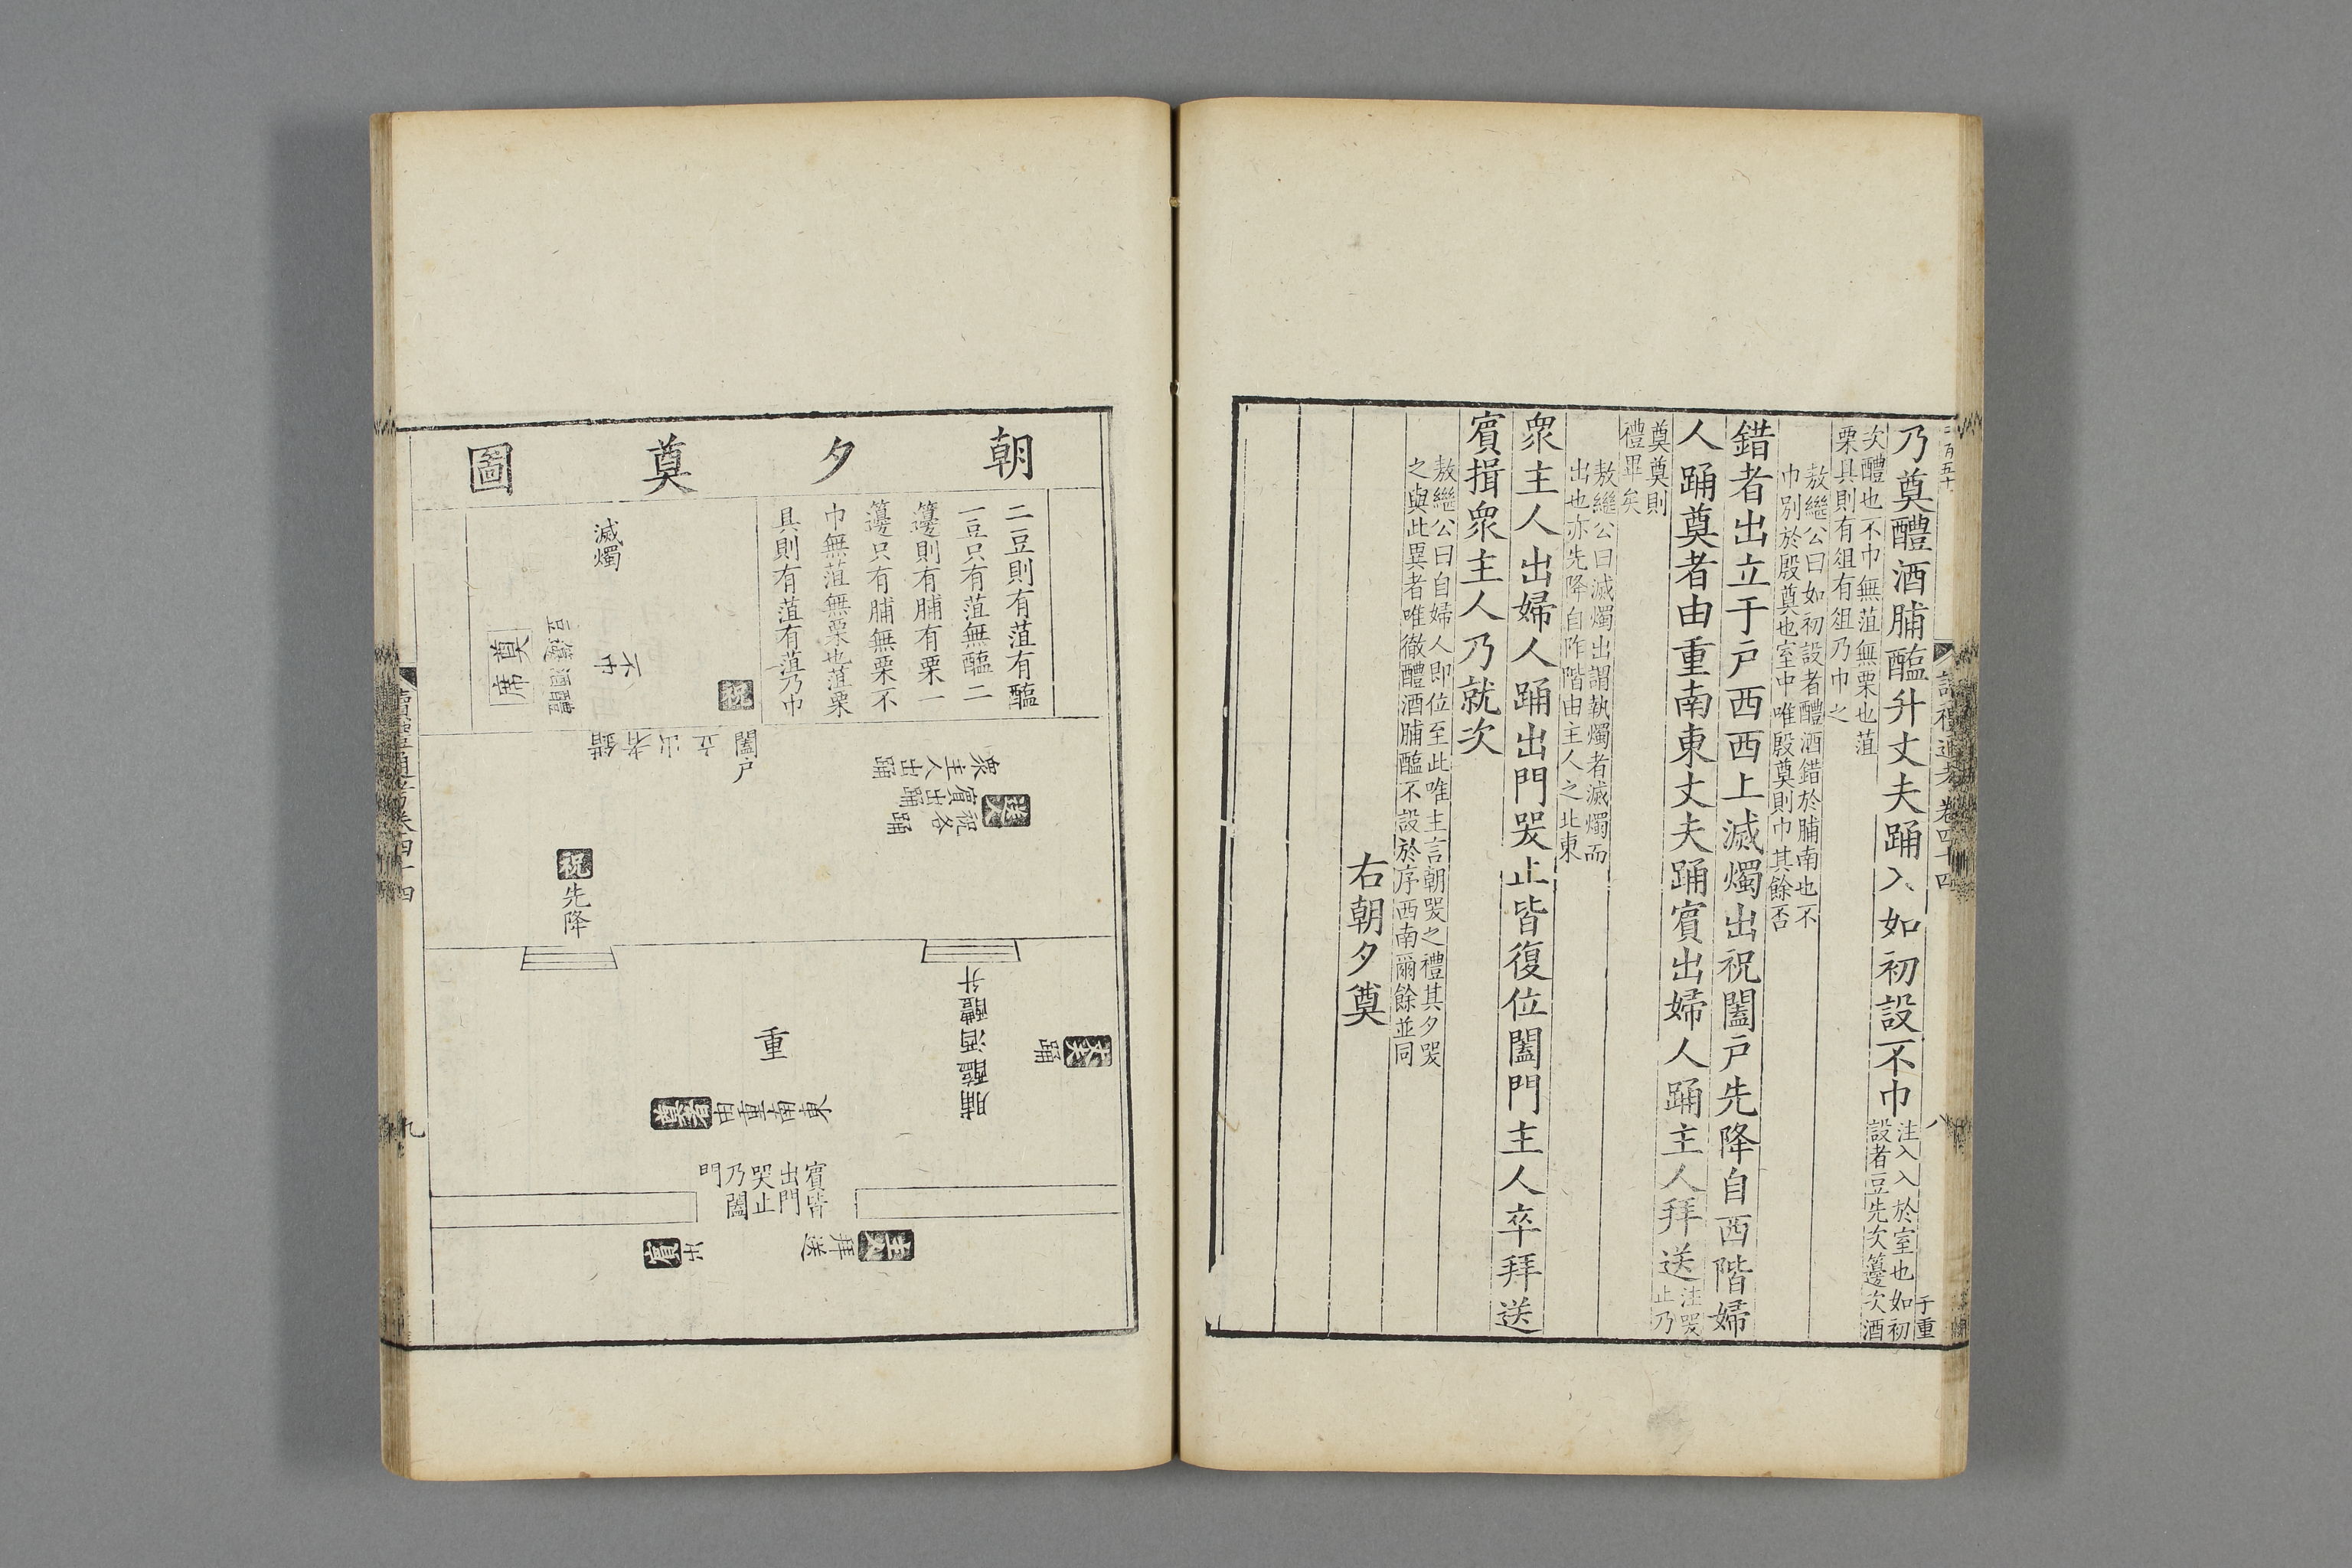 乃奠醴酒脯醢升丈夫踊入如初設不巾
注入入於室也如初
設者豆先次籩次酒
次醴也不巾無菹無栗也菹
栗具則有俎有俎乃巾之
敖繼公曰如初設者醴酒錯於脯南也不
巾別於殷奠也室中唯殷奠則巾其餘否
錯者出立于戶西西上滅燭出祝闔戶先降自西階婦
人踊奠者由重南東丈夫踊賓出婦人踊主人拜送
注哭
止乃
奠奠則
禮畢矣
敖繼公曰滅燭出謂執燭者滅燭而
出也亦先降自阼階由主人之北東
衆主人出婦人踊出門哭止皆復位闔門主人卒拜送
賓揖衆主人乃就次
敖繼公曰自婦人即位至此唯主言朝哭之禮其夕哭
之與此異者唯徹醴酒脯醢不設於序西南爾餘並同
右朝夕奠
讀禮通考卷四十四
八
于重
朝夕奠圖
二豆則有菹有醢
一豆只有菹無醢二
籩則有脯有栗一
籩只有脯無栗不
巾無菹無栗也菹栗
具則有菹有菹乃巾
滅燭
不巾
豆籩酒醴
奠席
祝
闔戶
錯者出立
衆主人出踊
賓出踊
祝各踊
祝先降
升醴酒醢脯
丈夫踊
重
奠者由重南東
賓皆
出門
哭止
乃闔
門
主人拜送
賓出
讀禮通考卷四十四
九